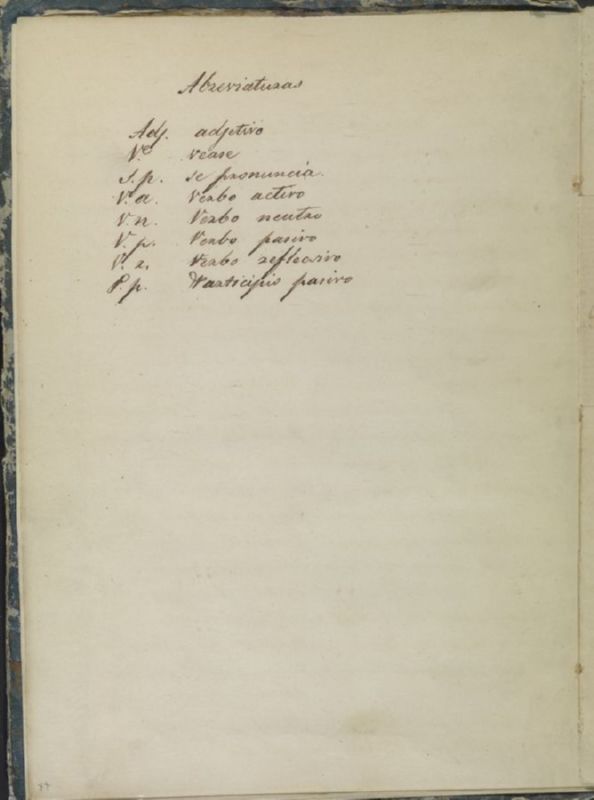 Abreviaturas
Adj. adjetivo
V.e vease
S. p. se pronuncia.
V. a. Verbo activo
V. n. Verbo neutro
V. p. Verbo pasivo
V. r. Verbo reflecsivo
P. p. Participio pasivo